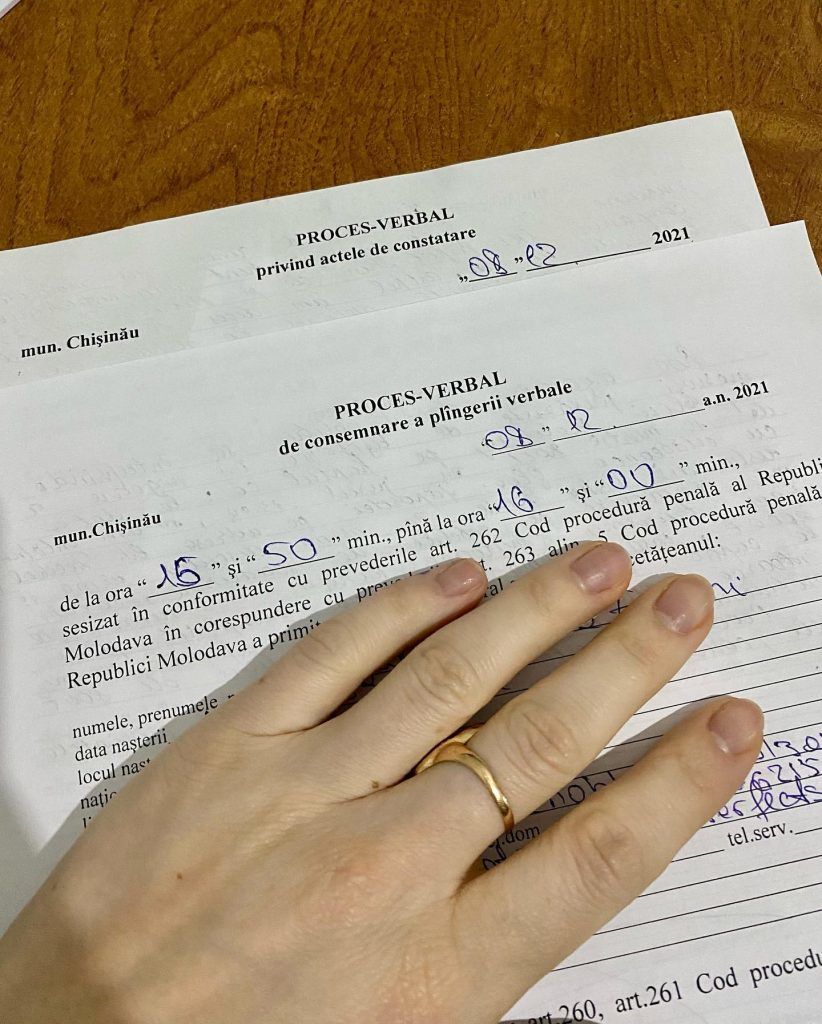 PROCES-VERBAL
privind actele de constatare
„08” 12 2021
mun. Chişinău
PROCES-VERBAL
de consemnare a plîngerii verbale
“08” 12 a.n. 2021
mun.Chişinău
de la ora “ 15 ” şi “ 50 ” min., pînă la ora “16 ” şi “ 00 ” min.,
sesizat în conformitate cu prevederile art. 262 Cod procedură penală al Republi
Molodava în corespundere cu 263 alin. 5 Cod procedură penală
Republici Molodova a primit cetăţeanul:
numele, prenumele
data naşterii
locul
dom
tel.serv.
art.260, art.261 Cod procedu